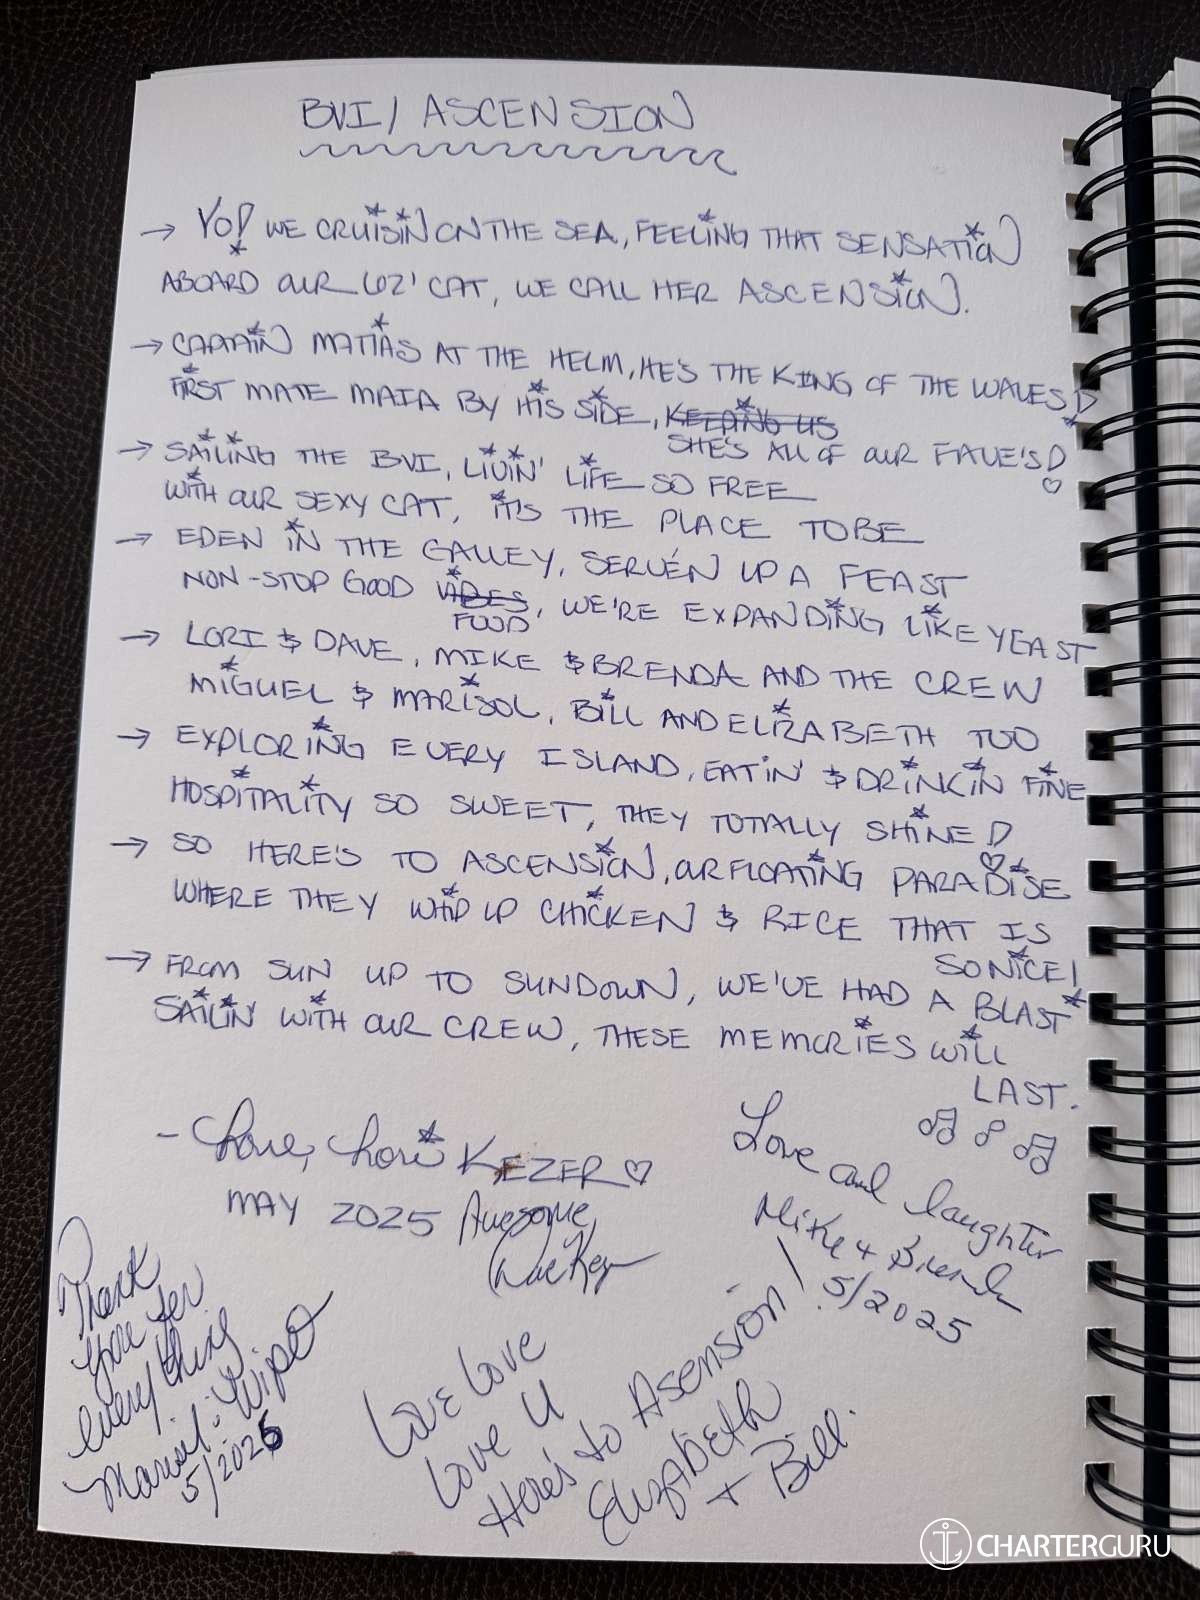 BVI / ASCENSION
→ YO! WE CRUISIN ON THE SEA, FEELING THAT SENSATION
ABOARD OUR 62' CAT, WE CALL HER ASCENSION.
→ CAPTAIN MATIAS AT THE HELM, HE'S THE KING OF THE WAVES!
FIRST MATE MAIA BY HIS SIDE, KEEPING US
SHE'S ALL OF OUR FAVE'S! ♡
→ SAILING THE BVI, LIVIN' LIFE SO FREE
WITH OUR SEXY CAT, IT'S THE PLACE TO BE
→ EDEN IN THE GALLEY, SERVEN UP A FEAST
NON-STOP GOOD VIBES, WE'RE EXPANDING LIKE YEAST
FOOD
→ LORI & DAVE, MIKE & BRENDA AND THE CREW
MIGUEL & MARISOL, BILL AND ELIZABETH TOO
→ EXPLORING EVERY ISLAND, EATIN' & DRINKIN FINE
HOSPITALITY SO SWEET, THEY TOTALLY SHINE! ♡
→ SO HERE'S TO ASCENSION, OUR FLOATING PARADISE
WHERE THEY WHIP UP CHICKEN & RICE THAT IS
SO NICE!
→ FROM SUN UP TO SUNDOWN, WE'VE HAD A BLAST
SAILIN' WITH OUR CREW, THESE MEMORIES WILL
LAST.
- Love, Lori KEZER ♡
MAY 2025
Awesome,
Dave
Love and laughter
Mike + Brenda
5/2025
Thank
you for
everything
Marisol
5/2025
Live Love
Love U
Here's to Asension!
Elizabeth
+ Bill.
CHARTERGURU